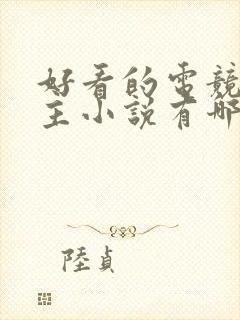 好看的電競
主小說有哪
陸貞